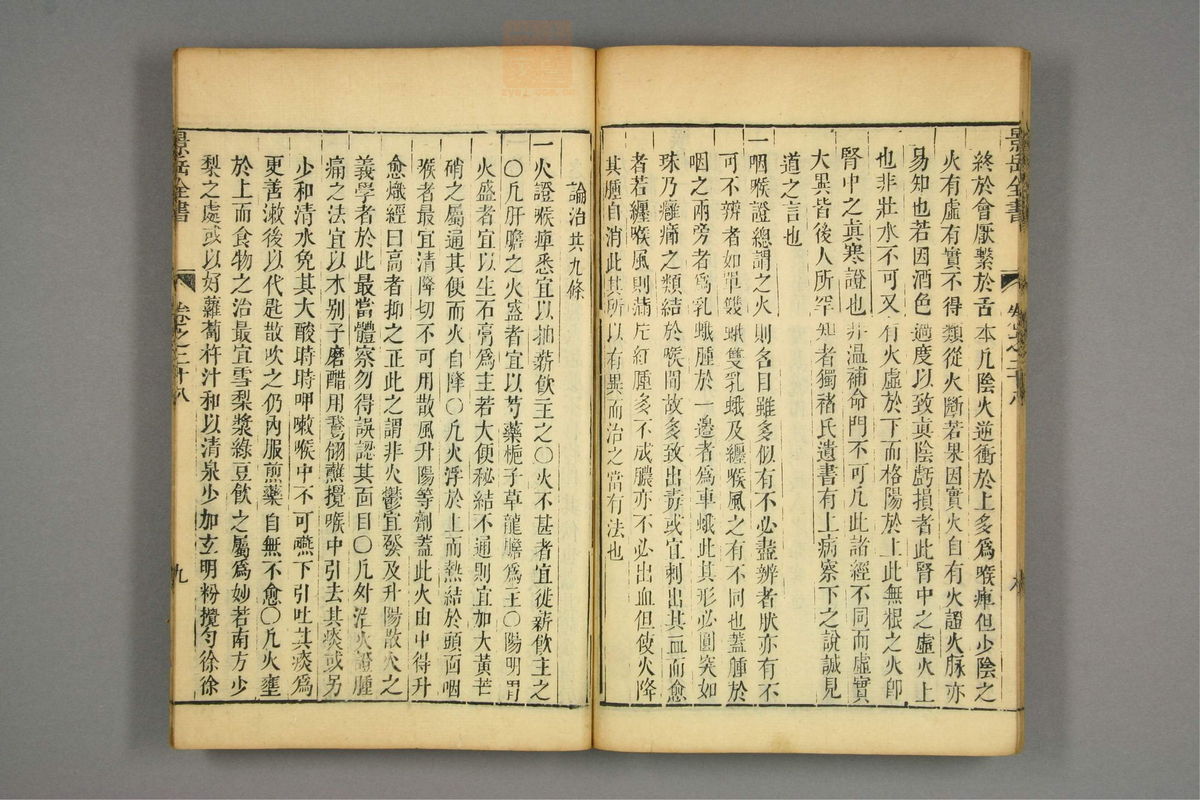 景岳全書
卷之二十八
終於會厭繫於舌本凡陰火逆衝於上多為喉痺但少陰之
火有虛有實不得類從火斷若果因實火自有火證火脉亦
易知也若因酒色過度以致眞陰虧損者此腎中之虛火上
也非壯水不可又有火虛於下而格陽於上此無根之火卽
腎中之眞寒證也非溫補命門不可凡此諸經不同而虛實
大異皆後人所罕知者獨褚氏遺書有上病察下之說誠見
道之言也
一咽喉證總謂之火則名目雖多似有不必盡辨者然亦有不
可不辨者如單雙蛾雙乳蛾及纏喉風之有不同也蓋腫於
咽之兩旁者為乳蛾腫於一邊者為車蛾此其形必圓突如
珠乃癰癤之類結於喉間故多致出毒或宜刺出其血而愈
者若纏喉風則滿片紅腫多不成膿亦不必出血但使火降
其腫自消此其所以有異而治之當有法也
論治共九條
一火證喉痺悉宜以抽薪飲主之〇火不甚者宜徙薪飲主之
〇凡肝膽之火盛者宜以芍藥梔子草龍膽為主〇陽明胃
火盛者宜以生石膏為主若大便秘結不通則宜加大黃芒
硝之屬通其便而火自降〇凡火浮於上而熱結於頭面咽
喉者最宜清降切不可用散風升陽等劑蓋此火由中得升
愈熾經曰高者抑之正此之謂非火鬱宜發及升陽散火之
義學者於此最當體察勿得誤認其面目〇凡外治火證腫
痛之法宜以木别子磨醋用鵞翎蘸攪喉中引去其痰或另
少和清水免其大酸時時呷嗽喉中不可嚥下引吐其痰為
更善漱後以代匙散吹之仍內服煎藥自無不愈〇凡火壅
於上而食物之治最宜雪梨漿綠豆飲之屬為妙若南方少
梨之處或以好蘿蔔杵汁和以清泉少加玄明粉攪勻徐徐
景岳全書
卷之二十八
九